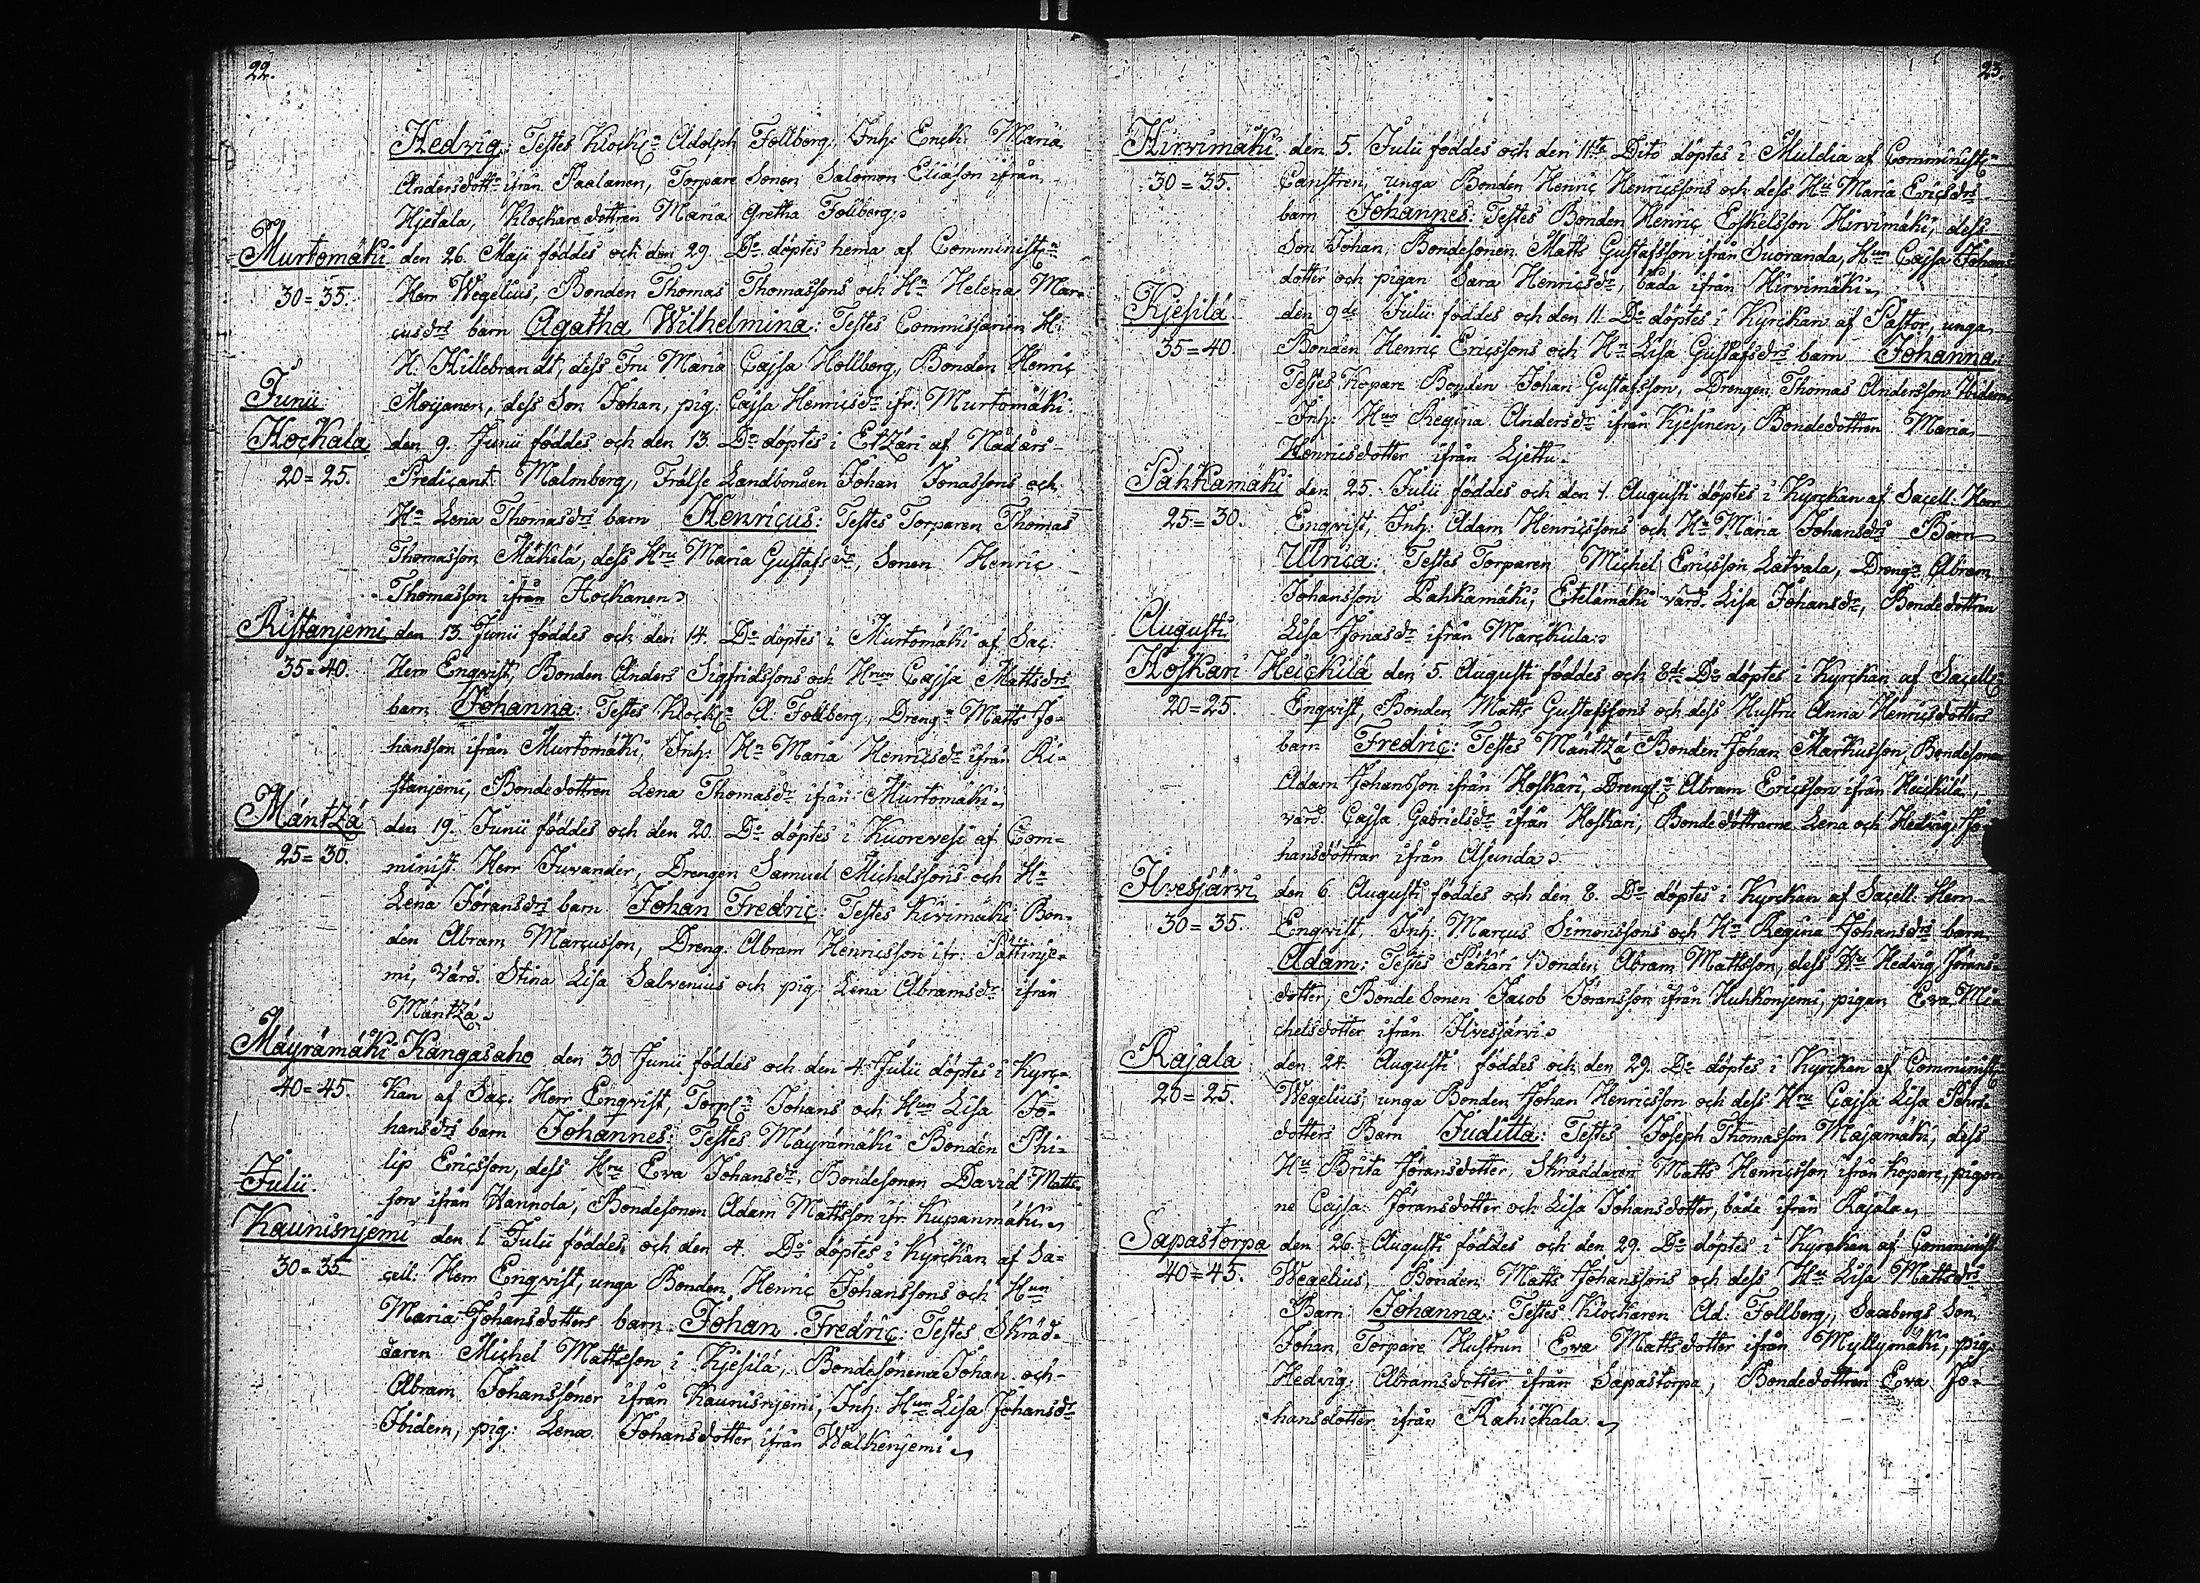 22.
Hedvig: Testes Klock: Adolph Follberg, Inh: Enck: Maria
Andersdottr ifrån Paalanen, Torpare Sonen Salomon Eliason ifrån
Hjetala, Klockaredottren Maria Gretha Follberg.
Murtomäki den 26. Maji föddes och den 29. Do döptes hema af Comministrn
30=35. Herr Wegelius, Bonden Thomas Thomassons och Hn Helena Mar-
cusdrs barn Agatha Wilhelmina: Testes Commissarien H:
H. Hillebrandt, dess Fru Maria Cajsa Hollberg, Bonden Henric
Junii Moijanen, dess Son Johan, pig: Cajsa Henricsdr ifr: Murtomäki.
Kockala den 9. Junii föddes och den 13. Do döptes i Etzäri af Nådårs-
20=25. Predicant Malmberg, Frälse Landbonden Johan Jonassons och
Hn Lena Thomasdrs barn Henricus: Testes Torparen Thomas
Thomasson Mäkelä, dess Hru Maria Gustafsdr, Sonen Henric
Thomasson ifrån Kockanen.
Ristanjemi den 13. Junii föddes och den 14. Do döptes i Murtomäki af Sac:
35=40. Herr Enqvist, Bonden Anders Sigfridssons och Hrun Cajsa Mattsdrs
barn Johanna: Testes Klock: A: Follberg, Drengn Matts Jo-
hansson ifrån Murtomäki, Inh: Hn Maria Henricsdr ifrån Ri-
stanjemi, Bondedottren Lena Thomasdr ifrån Murtomäki.
Mäntzä den 19. Junii föddes och den 20. Do döptes i Kuorevesi af Com-
25=30. minist. Herr Juvander, Drengen Samuel Michelssons och Hn
Lena Jöransdrs barn Johan Fredric: Testes Kivimäki Bon-
den Abram Marcusson, Dreng: Abram Henricsson ifr: Pättinje-
mi, Värd. Stina Lisa Salvenius och pig: Lena Abramsdr ifrån
Mäntzä.
Mäyrämäki Kangasaho den 30 Junii föddes och den 4. Julii döptes i Kyrc-
40=45. kan af Sac: Herr Enqvist, Torp: Johans och Hun Lisa Jo-
hansdrs barn Johannes: Testes Mäyrämäki Bonden Phi-
lip Ericsson, dess Hru Eva Johansdr, Bondesonen David Matts-
Julii son ifrån Hannola, Bondesonen Adam Mattsson ifr. Kupanmäki.
Kaunisnjemi den 1. Julii föddes och den 4. Do döptes i Kyrckan af Sa-
30=35 cell: Herr Enqvist, unga Bonden Henric Johanssons och Hun
Maria Johansdotters barn Johan Fredric: Testes Skräd-
daren Michel Mattsson i Kjesilä, Bondesönena Johan och
Abram Johanssöner ifrån Kaunisnjemi, Inh: Hun Lisa Johansdr
Ibidem, pig: Lena Johansdotter ifrån Walkenjemi.
23.
Hirvimäki den 5. Julii föddes och den 11te Dito döptes i Muldia af Comministr
30=35. Canstren, unga Bonden Henric Henricssons och dess Hu Maria Ericsdrs
barn Johannes: Testes Bonden Henric Eskelsson Hirvimäki, dess
Son Johan, Bondesonen Matts Gustafsson ifrån Suoranda, Hun Cajsa Johans-
dotter och pigan Sara Henricsdr, båda ifrån Hirvimäki.
Kjesilä den 9de Julii föddes och den 11. Do döptes i Kyrckan af Pastor, unga
35=40. Bonden Henric Ericssons och Hn Lisa Gustafsdrs barn Johanna:
Testes Kopare Bonden Johan Gustafsson, Drengen Thomas Andersson Ibidem
Inh: Hun Regina Andersdr ifrån Kjesinen, Bondedottren Maria
Henricsdotter ifrån Ljettu.
Pahkamäki den 25. Julii föddes och den 1. Augusti döptes i Kyrckan af Sacell. Herr
25=30. Enqvist, Inh: Adam Henricssons och Hn Maria Johansdrs Barn
Ulrica: Testes Torparen Michel Ericsson Latvala, Drengn Abram
Johansson Pahkamäki, Etelämäki värd. Lisa Johansdr, Bondedottren
Augusti Lisa Jonasdr ifrån Marckula.
Koskari Heickilä den 5. Augusti föddes och 8de Do döptes i Kyrckan af Sacell:
20=25. Enqvist, Bonden Matts Gustafssons och dess Hustru Anna Henricsdotters
barn Fredric: Testes Mäntzä Bonden Johan Markusson, Bondesonen
Adam Johansson ifrån Koskari, Dreng: Abram Ericsson ifrån Heickilä,
värd. Cajsa Gabrielsdr ifrån Koskari, Bondedöttrarna Lena och Hedvig Jo-
hansdöttrar ifrån Asunda.
Ilvesjärvi den 6. Augusti föddes och den 8. Do döptes i Kyrckan af Sacell. Herr
30=35. Enqvist, Inh: Marcus Simonssons och Hn Regina Johansdrs barn
Adam: Testes Pähäri Bonden Abram Mattsson, dess Hu Hedvig Jörans-
dotter, Bonde Sonen Jacob Jöransson ifrån Huhkonjemi, pigan Eva Mi-
chelsdotter ifrån Ilvesjärvi.
Rajala den 24. Augusti föddes och den 29. Do döptes i Kyrckan af Comministr
20=25. Wegelius, unga Bonden Johan Henricsson och dess Hru Cajsa Lisa Pehrs-
dotters Barn Juditta: Testes Joseph Thomasson Majamäki, dess
Hu Brita Jöransdotter, Skräddaren Matts Henricsson ifrån Kopare, pigor-
ne Cajsa Jöransdotter och Lisa Johansdotter, båda ifrån Rajala.
Sapastorpa den 26. Augusti föddes och den 29. Do döptes i Kyrckan af Comminist.
40=45. Wegelius, Bonden Matts Johanssons och dess Hu Lisa Mattsdrs
Barn: Johanna: Testes Klockaren Ad: Follberg, Saxbergs Son
Johan, Torpare Hustrun Eva Mattsdotter ifrån Myllymäki, pig:
Hedvig Abramsdotter ifrån Sapastorpa, Bondedottren Eva Jo-
hansdotter ifrån Rahickala.